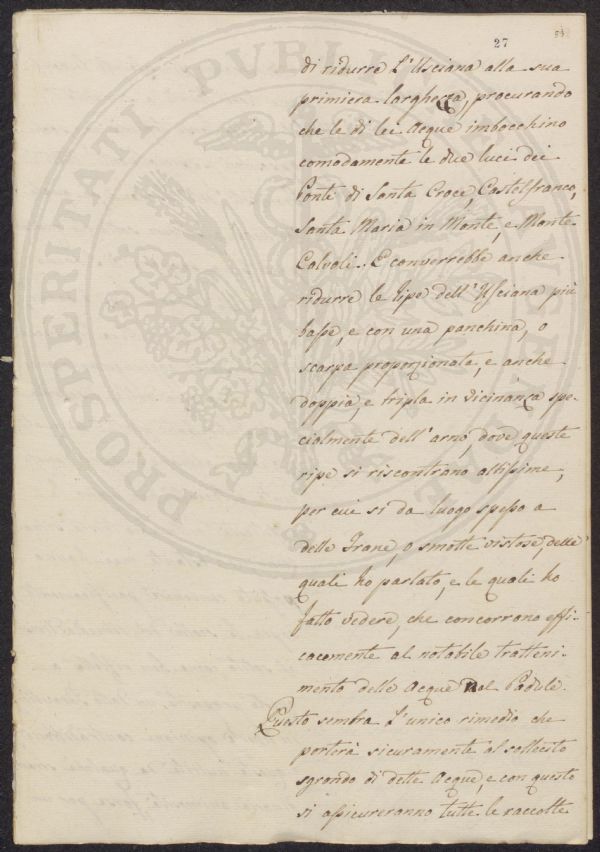 27
53
di ridurre l'Usciana alla sua
primiera larghezza, procurando
che le di lei Acque imbocchino
comodamente le due luci dei
Ponti di Santa Croce, Castelfranco,
Santa Maria in Monte, e Monte-
Calvoli. E converrebbe anche
ridurre le Ripe dell'Usciana più
basse, e con una panchina, o
scarpa proporzionata, e anche
doppia, e tripla in vicinanza spe-
cialmente dell'arno, dove queste
ripe si riscontrano altissime,
per cui si da luogo spesso a
delle Frane, o smotte vistose, delle
quali ho parlato, e le quali ho
fatto vedere, che concorrono effi-
cacemente al notabile tratteni-
mento delle Acque nel Padule.
Questo sembra l'unico rimedio che
porterà sicuramente al sollecito
sgrondo di dette Acque, e con questo
si assicureranno tutte le raccolte
PROSPERITATI PVBLICAE